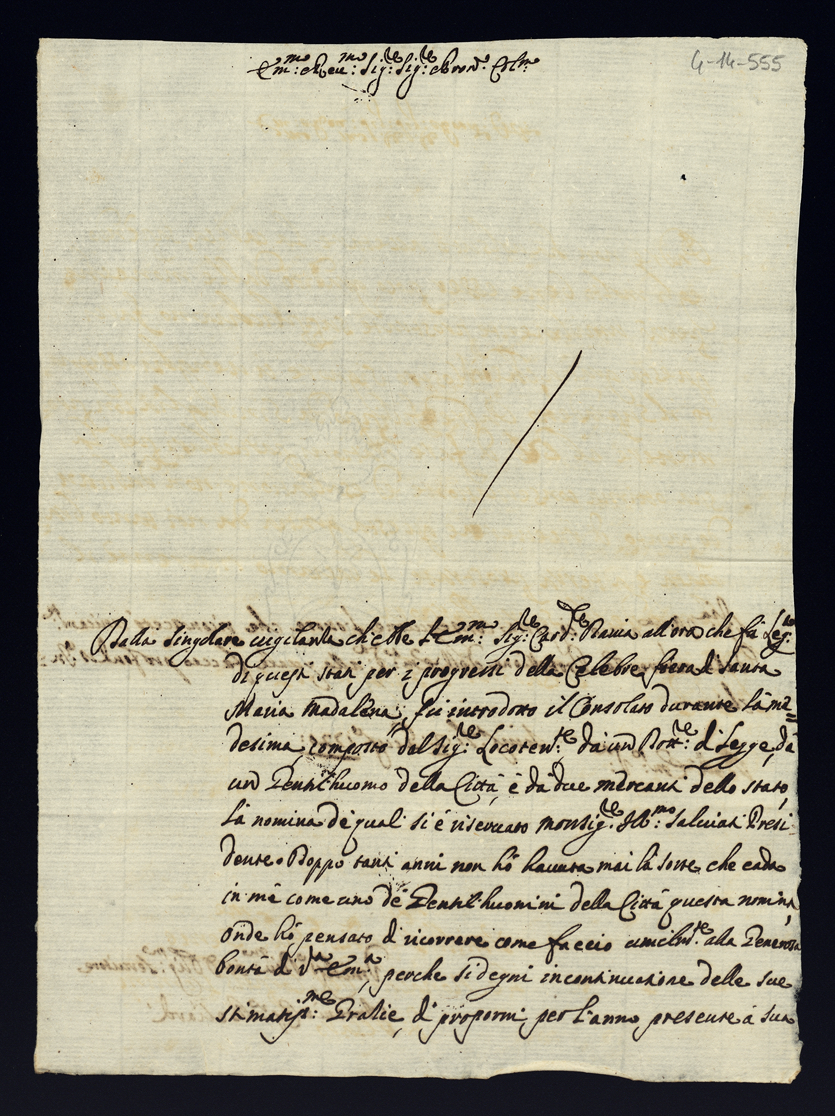 4-14-555
Em:mo e Reu:mo Sig:re Sig:re e Pron:e Col:mo
Dalla singolare uigilanza ch'ebbe l'Em:mo Sig:re Card:le Bania all'ora che fù Leg:to
di questi stati per i progressi della Celebre fiera di Santa
Maria Madalena, fù introdotto il Consolato durante la me=
desima, composto dal Sig:re Locoten:te, da un Dott:re di Legge, da
un Gentil'huomo della Città, e da due mercanti dello stato,
la nomina de quali si è riseruato monsig:re Ill:mo Saluiati Presi=
dente. Doppo tanti anni non hò hauuta mai la sorte che cada
in mè come uno de Gentil'huomini della Città questa nomina,
onde hò pensato di ricorrere come faccio umilm:te alla Generosa
bontà di V:ra Em:a, perche si degni in continuazione delle sue
stimatiss:me Grazie, di propormi per l'anno presente a sua